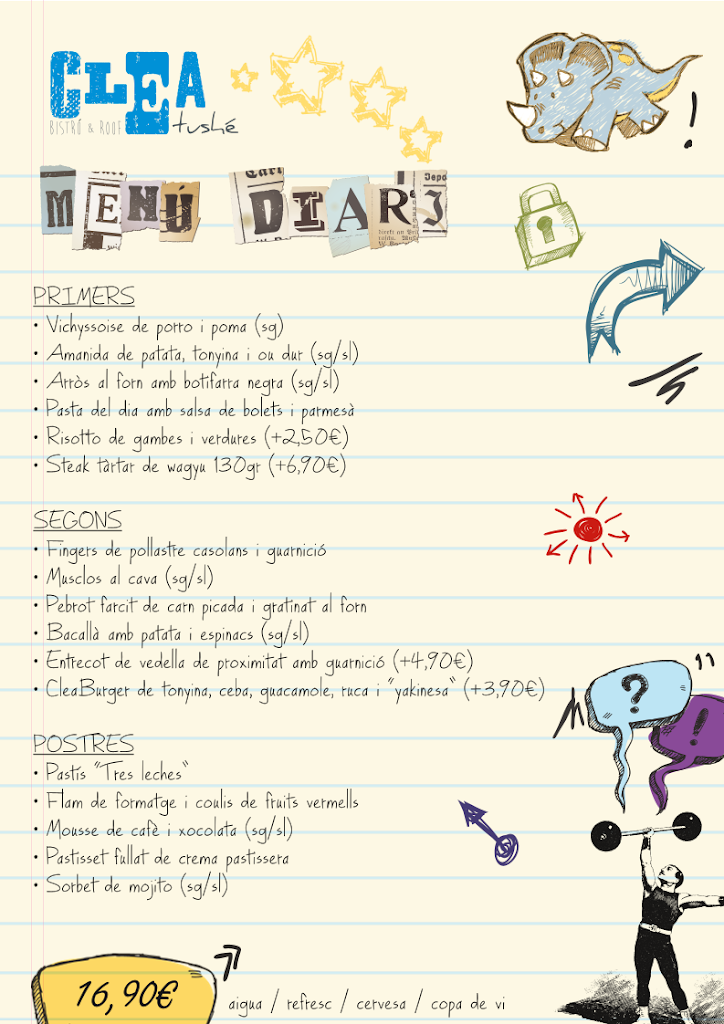 CLEA
BISTRÓ & ROOF tushé
MENÚ DIARI
PRIMERS
• Vichyssoise de porro i poma (sg)
• Amanida de patata, tonyina i ou dur (sg/sl)
• Arròs al forn amb botifarra negra (sg/sl)
• Pasta del dia amb salsa de bolets i parmesà
• Risotto de gambes i verdures (+2,50€)
• Steak tàrtar de wagyu 130gr (+6,90€)
SEGONS
• Fingers de pollastre casolans i guarnició
• Musclos al cava (sg/sl)
• Pebrot farcit de carn picada i gratinat al forn
• Bacallà amb patata i espinacs (sg/sl)
• Entrecot de vedella de proximitat amb guarnició (+4,90€)
• CleaBurger de tonyina, ceba, guacamole, ruca i "yakinesa" (+3,90€)
POSTRES
• Pastís "Tres leches"
• Flam de formatge i coulis de fruits vermells
• Mousse de cafè i xocolata (sg/sl)
• Pastisset fullat de crema pastissera
• Sorbet de mojito (sg/sl)
16,90€ aigua / refresc / cervesa / copa de vi